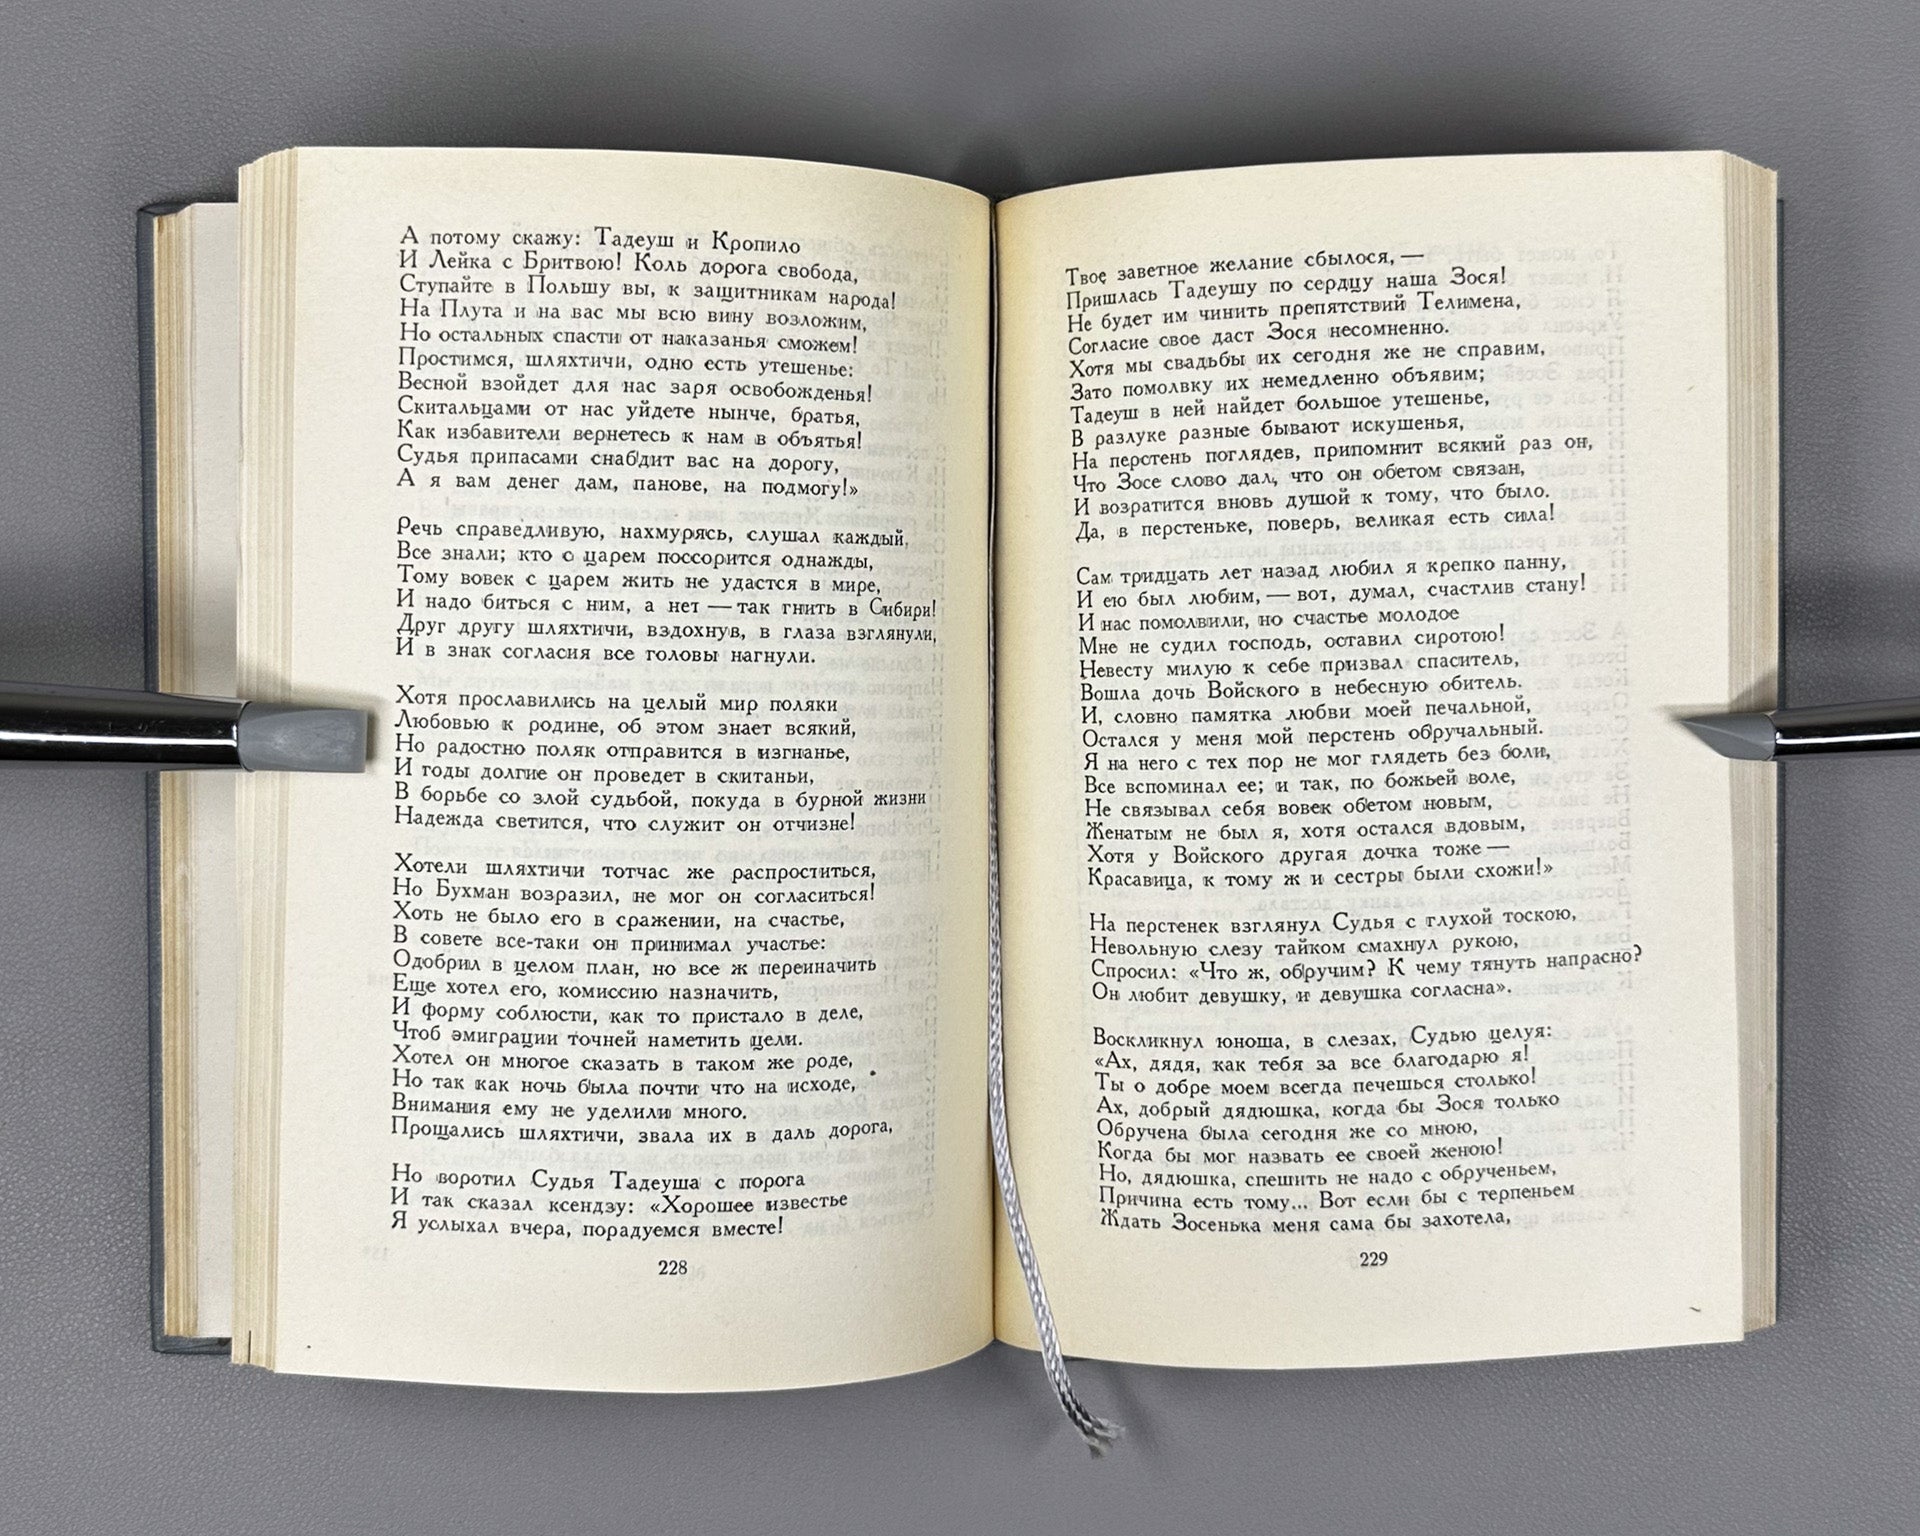 А потому скажу: Тадеуш и Кропило
И Лейка с Бритвою! Коль дорога свобода,
Ступайте в Польшу вы, к защитникам народа!
На Плута и на вас мы всю вину возложим,
Но остальных спасти от наказанья сможем!
Простимся, шляхтичи, одно есть утешенье:
Весной взойдет для нас заря освобожденья!
Скитальцами от нас уйдете нынче, братья,
Как избавители вернетесь к нам в объятья!
Судья припасами снабдит вас на дорогу,
А я вам денег дам, панове, на подмогу!»

Речь справедливую, нахмурясь, слушал каждый,
Все знали; кто с царем поссорится однажды,
Тому вовек с царем жить не удастся в мире,
И надо биться с ним, а нет — так гнить в Сибири!
Друг другу шляхтичи, вздохнув, в глаза взглянули,
И в знак согласия все головы нагнули.

Хотя прославились на целый мир поляки
Любовью к родине, об этом знает всякий,
Но радостно поляк отправится в изгнанье,
И годы долгие он проведет в скитаньи,
В борьбе со злой судьбой, покуда в бурной жизни
Надежда светится, что служит он отчизне!

Хотели шляхтичи тотчас же распроститься,
Но Бухман возразил, не мог он согласиться!
Хоть не было его в сражении, на счастье,
В совете все-таки он принимал участье:
Одобрил в целом план, но все ж переиначить
Еще хотел его, комиссию назначить,
И форму соблюсти, как то пристало в деле,
Чтоб эмиграции точней наметить цели.
Хотел он многое сказать в таком же роде,
Но так как ночь была почти что на исходе,
Внимания ему не уделили много.
Прощались шляхтичи, звала их в даль дорога,

Но воротил Судья Тадеуша с порога
И так сказал ксендзу: «Хорошее известье
Я услыхал вчера, порадуемся вместе!
228
Твое заветное желание сбылося, —
Пришлась Тадеушу по сердцу наша Зося!
Не будет им чинить препятствий Телимена,
Согласие свое даст Зося несомненно.
Хотя мы свадьбы их сегодня же не справим,
Зато помолвку их немедленно объявим;
Тадеуш в ней найдет большое утешенье,
В разлуке разные бывают искушенья,
На перстень поглядев, припомнит всякий раз он,
Что Зосе слово дал, что он обетом связан,
И возратится вновь душой к тому, что было.
Да, в перстеньке, поверь, великая есть сила!

Сам тридцать лет назад любил я крепко панну,
И ею был любим, — вот, думал, счастлив стану!
И нас помолвили, но счастье молодое
Мне не судил господь, оставил сиротою!
Невесту милую к себе призвал спаситель,
Вошла дочь Войского в небесную обитель.
И, словно памятка любви моей печальной,
Остался у меня мой перстень обручальный.
Я на него с тех пор не мог глядеть без боли,
Все вспоминал ее; и так, по божьей воле,
Не связывал себя вовек обетом новым,
Женатым не был я, хотя остался вдовым,
Хотя у Войского другая дочка тоже —
Красавица, к тому ж и сестры были схожи!»

На перстенек взглянул Судья с глухой тоскою,
Невольную слезу тайком смахнул рукою,
Спросил: «Что ж, обручим? К чему тянуть напрасно?
Он любит девушку, и девушка согласна».

Воскликнул юноша, в слезах, Судью целуя:
«Ах, дядя, как тебя за все благодарю я!
Ты о добре моем всегда печешься столько!
Ах, добрый дядюшка, когда бы Зося только
Обручена была сегодня же со мною,
Когда бы мог назвать ее своей женою!
Но, дядюшка, спешить не надо с обрученьем,
Причина есть тому... Вот если бы с терпеньем
Ждать Зосенька меня сама бы захотела,
229